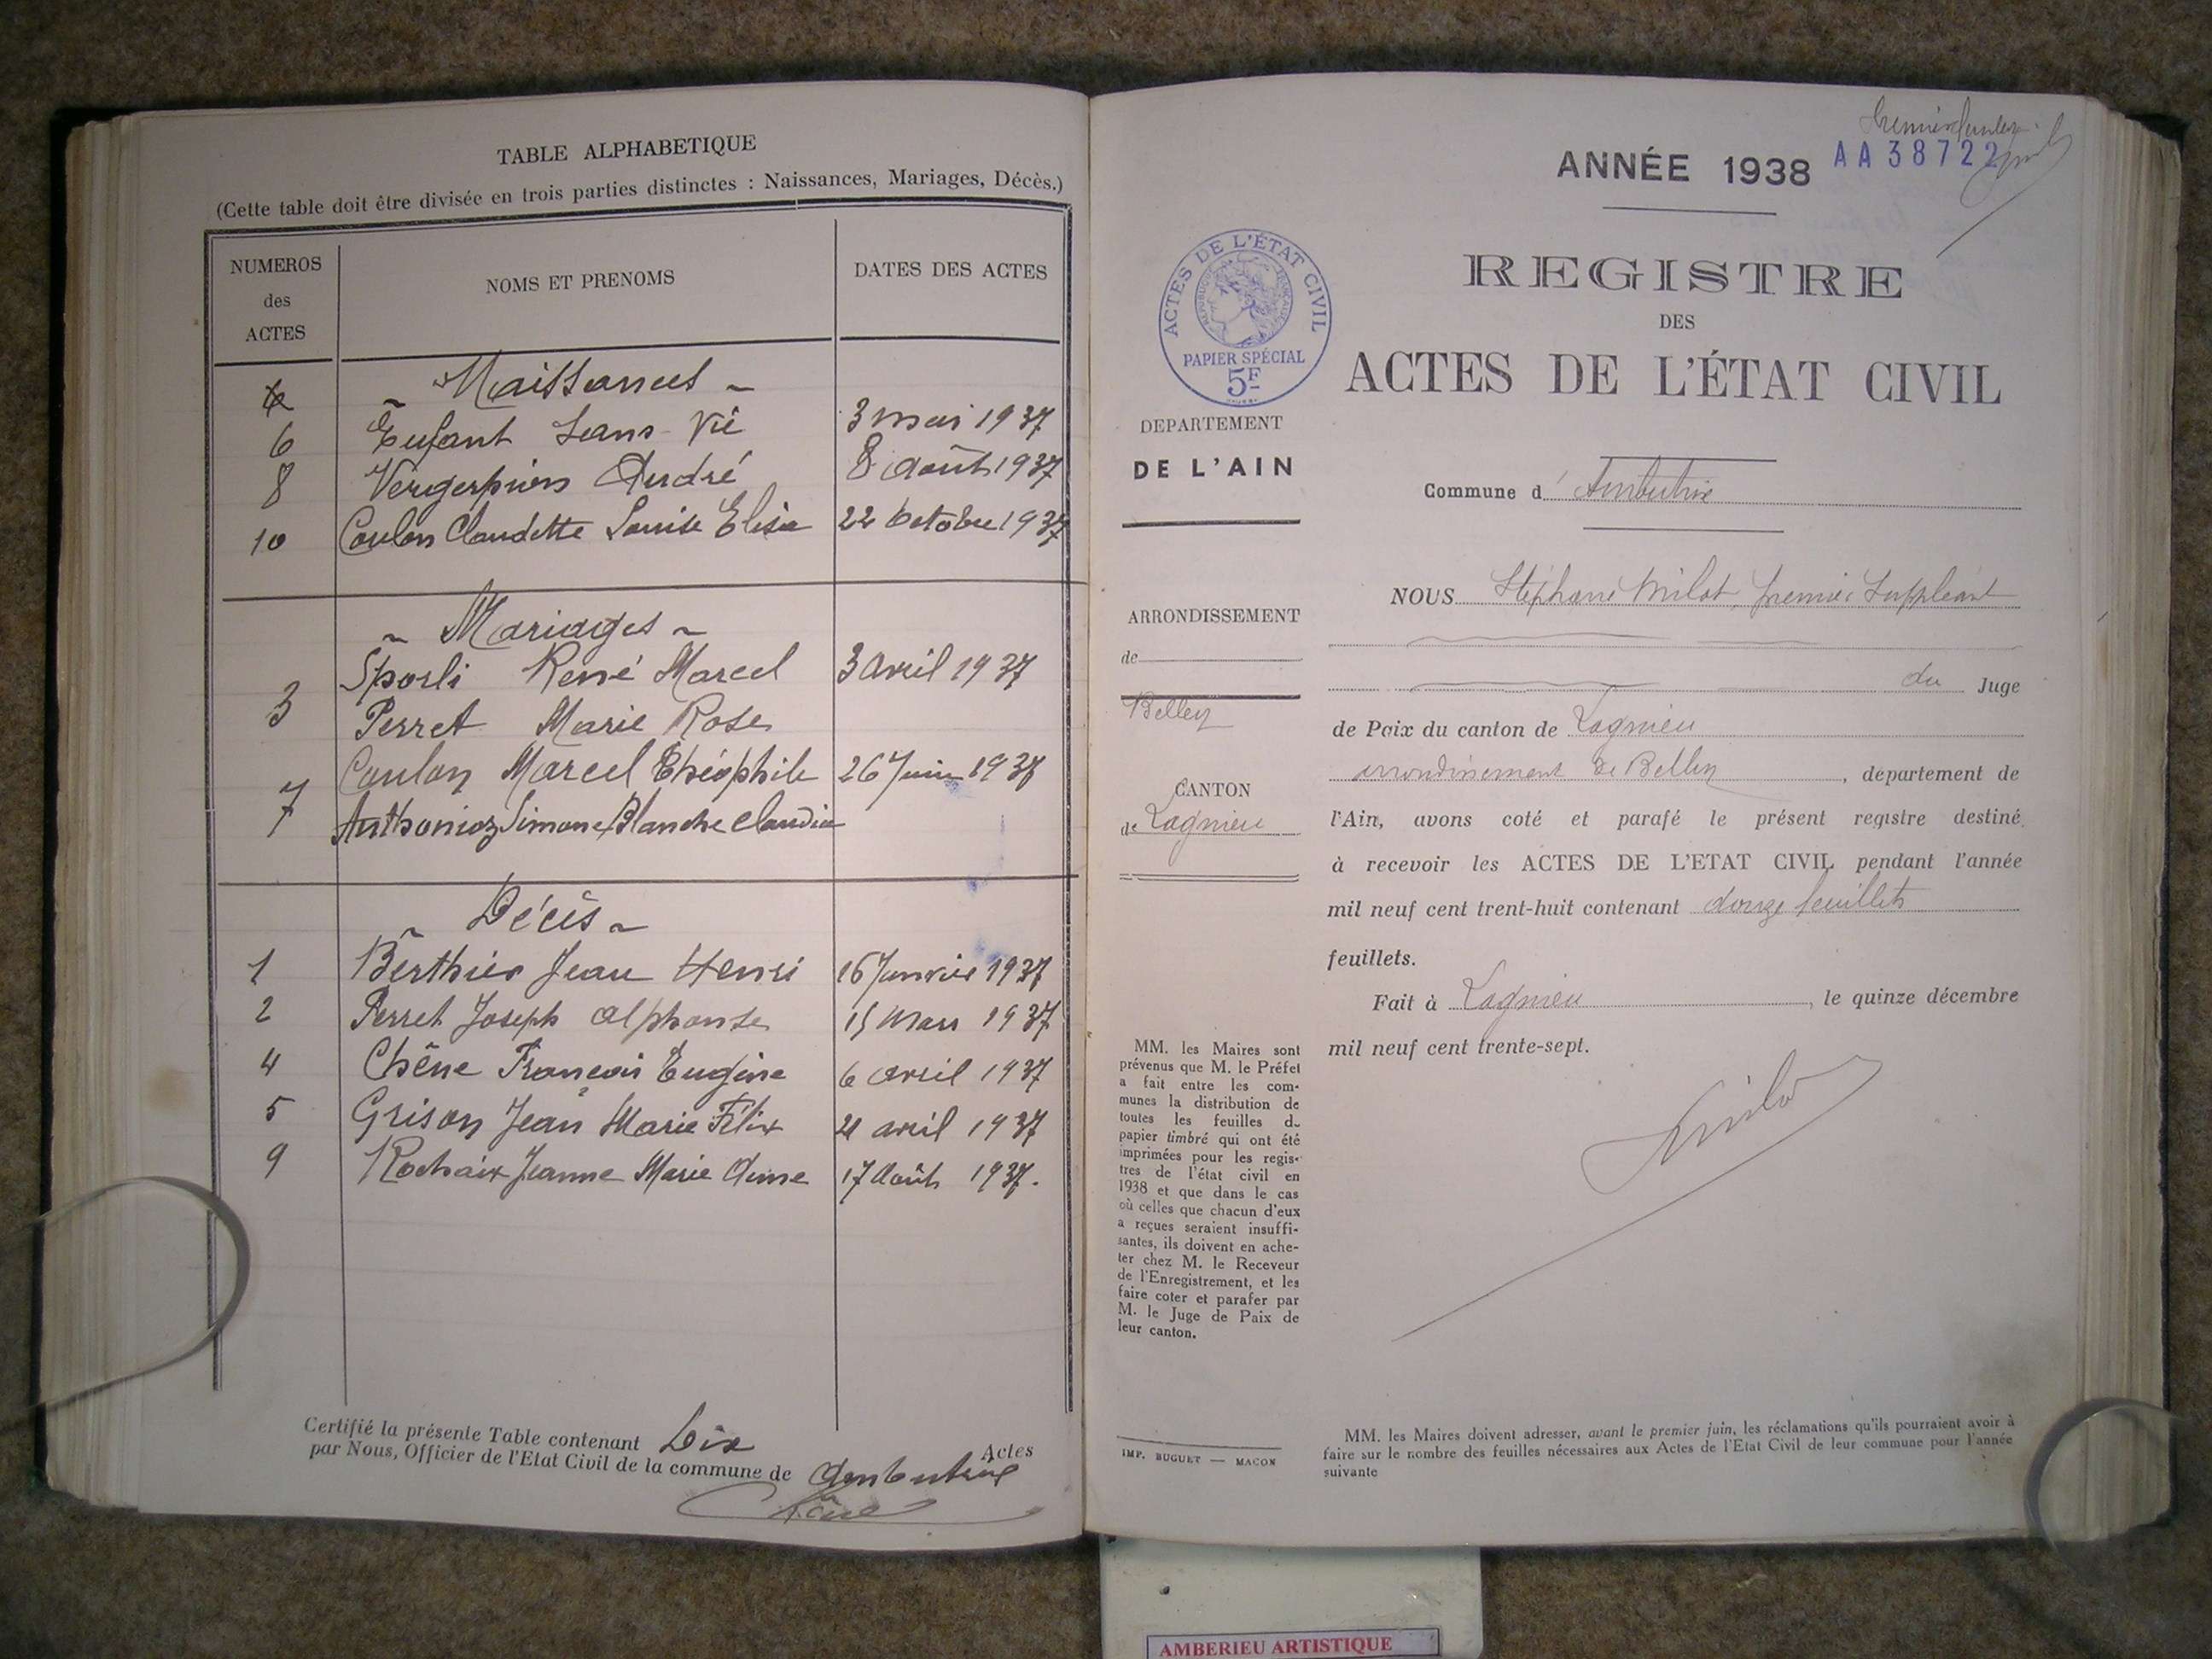 TABLE ALPHABETIQUE
(Cette table doit être divisée en trois parties distinctes : Naissances, Mariages, Décès.)
NUMEROS des ACTES
NOMS ET PRENOMS
DATES DES ACTES
~ Naissances ~
6 Enfant Sans Vie 3 mai 1937
8 Vergerpion André 8 Août 1937
10 Coulon Claudette Louise Elisa 22 Octobre 1937
~ Mariages ~
Sporli René Marcel 3 Avril 1937
3
Perret Marie Rose
Coulon Marcel Théophile 26 Juin 1937
7
Anthonioz Simone Blanche Claudia
~ Décès ~
1 Berthier Jean Henri 16 Janvier 1937
2 Perret Joseph Alphonse 15 Mars 1937
4 Chêne François Eugène 6 avril 1937
5 Grison Jean Marie Félix avril 1937
9 Rochaix Jeanne Marie 17 Août 1937.
Certifié la présente Table contenant Dix Actes
par Nous, Officier de l'Etat Civil de la commune de Ambutrix
Chêne
ANNÉE 1938
AA38722
REGISTRE
DES
ACTES DE L'ÉTAT CIVIL
ACTES DE L'ÉTAT CIVIL
REPUBLIQUE FRANÇAISE
PAPIER SPÉCIAL
5F
DEPARTEMENT
DE L'AIN
Commune d' Ambutrix
ARRONDISSEMENT
de
Belley
CANTON
de Lagnieu
NOUS Stéphane Milat, premier Suppléant
du Juge
de Paix du canton de Lagnieu
arrondissement de Belley, département de
l'Ain, avons coté et parafé le présent registre destiné
à recevoir les ACTES DE L'ETAT CIVIL pendant l'année
mil neuf cent trent-huit contenant douze feuillets
feuillets.
Fait à Lagnieu, le quinze décembre
mil neuf cent trente-sept.
MM. les Maires sont
prévenus que M. le Préfet
a fait entre les com-
munes la distribution de
toutes les feuilles de
papier timbré qui ont été
imprimées pour les regis-
tres de l'état civil en
1938 et que dans le cas
où celles que chacun d'eux
a reçues seraient insuffi-
santes, ils doivent en ache-
ter chez M. le Receveur
de l'Enregistrement, et les
faire coter et parafer par
M. le Juge de Paix de
leur canton.
IMP. BUGUET — MACON
MM. les Maires doivent adresser, avant le premier juin, les réclamations qu'ils pourraient avoir à
faire sur le nombre des feuilles nécessaires aux Actes de l'Etat Civil de leur commune pour l'année
suivante
AMBERIEU ARTISTIQUE